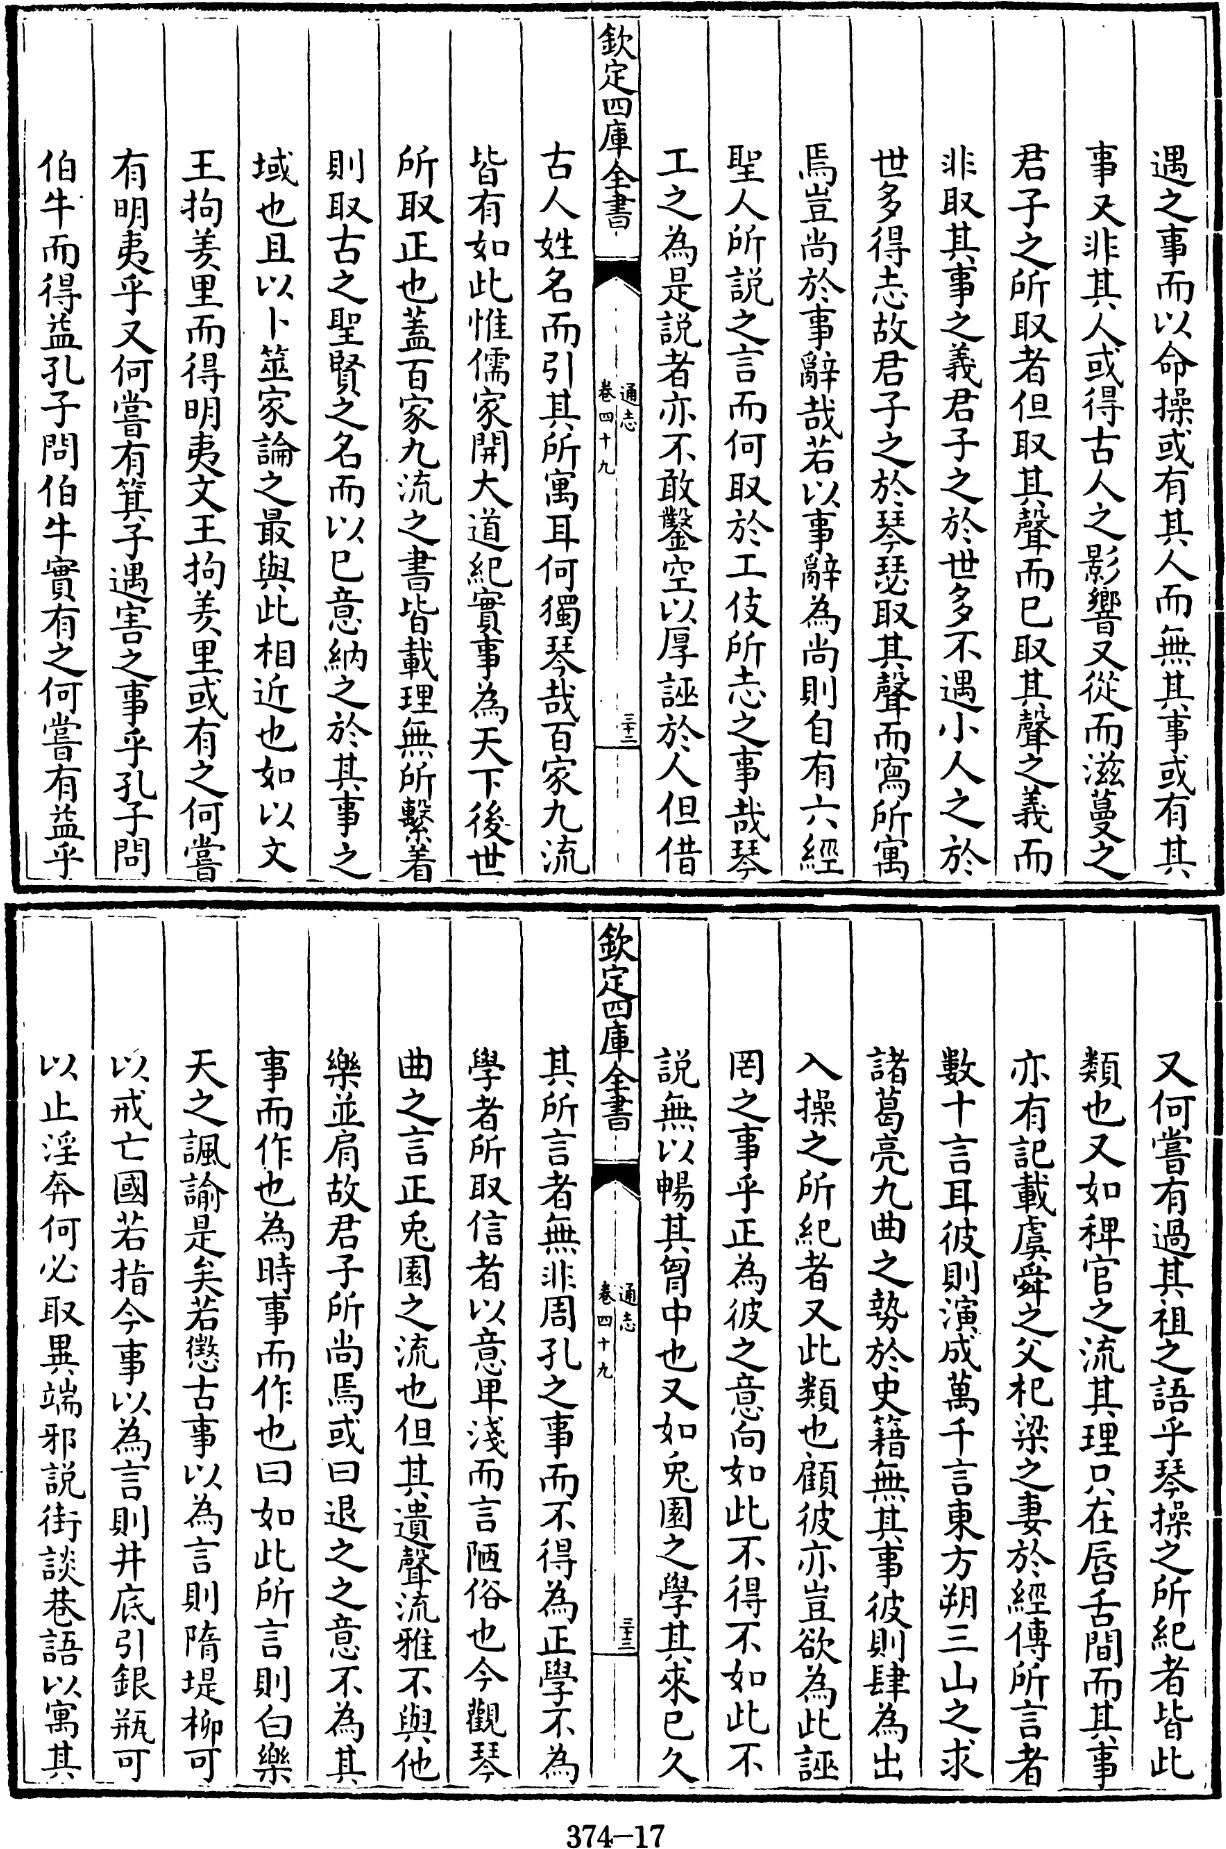 遇之事而以命操或有其人而無其事或有其
事又非其人或得古人之影響又從而滋蔓之
君子之所取者但取其聲而已取其聲之義而
非取其事之義君子之於世多不遇小人之於
世多得志故君子之於琴瑟取其聲而寫所寓
焉豈尚於事辭哉若以事辭為尚則自有六經
聖人所說之言而何取於工伎所志之事哉琴
工之為是說者亦不敢鑿空以厚誣於人但借
欽定四庫全書
通志
卷四十九
三十二
古人姓名而引其所寓耳何獨琴哉百家九流
皆有如此惟儒家開大道紀實事為天下後世
所取正也蓋百家九流之書皆載理無所繫着
則取古之聖賢之名而以已意納之於其事之
域也且以卜筮家論之最與此相近也如以文
王拘羑里而得明夷文王拘羑里或有之何嘗
有明夷乎又何嘗有箕子遇害之事乎孔子問
伯牛而得益孔子問伯牛實有之何嘗有益乎
又何嘗有過其祖之語乎琴操之所紀者皆此
類也又如稗官之流其理只在唇舌間而其事
亦有記載虞舜之父杞梁之妻於經傳所言者
數十言耳彼則演成萬千言東方朔三山之求
諸葛亮九曲之勢於史籍無其事彼則肆為出
入操之所紀者又此類也顧彼亦豈欲為此誣
罔之事乎正為彼之意向如此不得不如此不
說無以暢其胷中也又如兎園之學其來已久
欽定四庫全書
通志
卷四十九
三十三
其所言者無非周孔之事而不得為正學不為
學者所取信者以意卑淺而言陋俗也今觀琴
曲之言正兎園之流也但其遺聲流雅不與他
樂並肩故君子所尚焉或曰退之之意不為其
事而作也為時事而作也曰如此所言則白樂
天之諷諭是矣若懲古事以為言則隋堤柳可
以戒亡國若指今事以為言則井底引銀瓶可
以止淫奔何必取異端邪說街談巷語以寓其
374-17